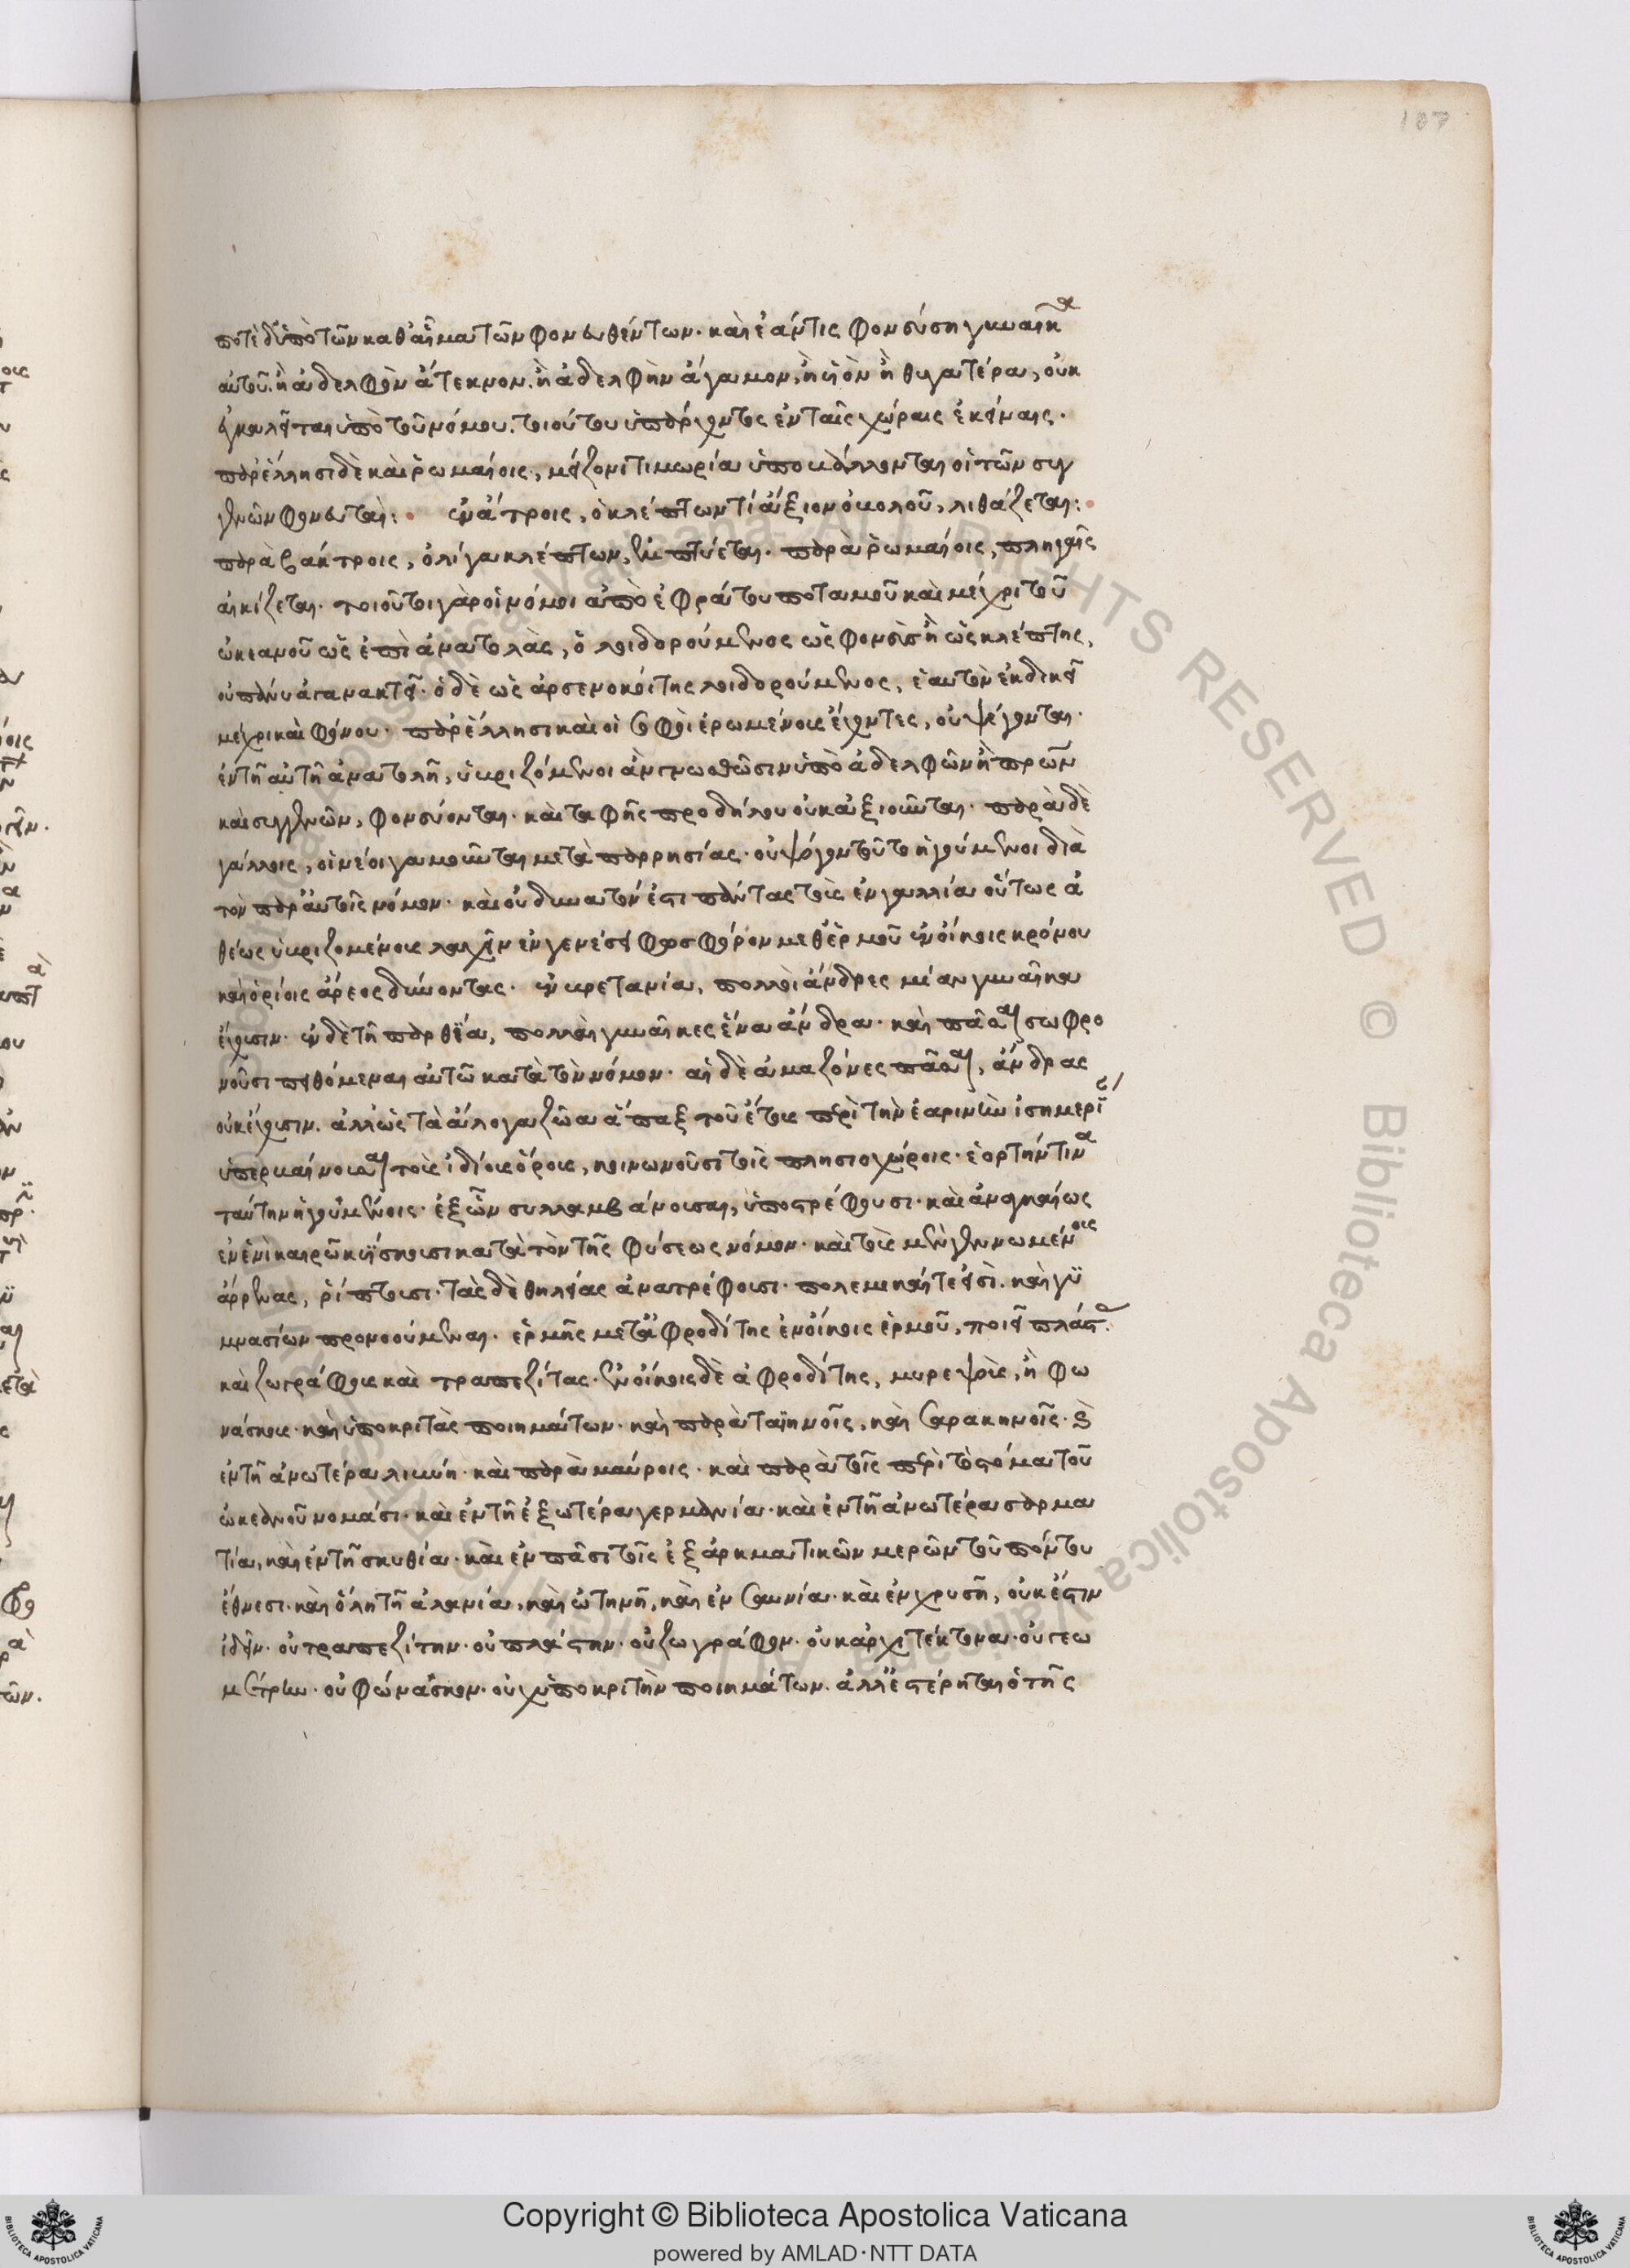 187
ποτὲ δὲ ὑπὸ τῶν καθ' αἷμα τῶν φονευθέντων· καὶ ἐάν τις φονεύσῃ γυναῖκα
αὐτοῦ. ἢ ἀδελφὸν ἄτεκνον. ἢ ἀδελφὴν ἄγαμον, ἢ υἱὸν ἢ θυγατέρα, οὐκ
ἐγκαλεῖται ὑπὸ τοῦ νόμου. τοιούτου ὑπάρχοντος ἐν ταῖς χώραις ἐκείναις·
παρ' ἕλλησι δὲ καὶ ῥωμαίοις, μείζονι τιμωρία ὑποβάλλονται οἱ τῶν συγ
γενῶν φονευταί: ἐν ἄτροις, ὁ κλέπτων τί ἄξιον ὀβολοῦ, λιθάζεται:
παρὰ βάκτροις, ὀλίγα κλέπτων, ἐμπτύεται· παρὰ ῥωμαίοις, πληγαῖς
αἰκίζεται· τοιοῦτοι γὰρ οἱ νόμοι ἀπὸ ἐφράτου ποταμοῦ καὶ μέχρι τοῦ
ὠκεανοῦ ὡς ἐπὶ ἀνατολὰς, ὁ λοιδορούμενος ὡς φονεὺς ἢ ὡς κλέπτης,
οὐ πάνυ ἀγανακτεῖ· ὁ δὲ ὡς ἀρσενοκοίτης λοιδορούμενος, ἑαυτὸν ἐκδικεῖ
μέχρι καὶ φόνου· παρ' ἕλλησι καὶ οἱ σοφοὶ ἐρωμένους ἔχοντες, οὐ ψέγονται·
ἐν τῆ αὐτῆ ἀνατολῆ, ὑβριζόμενοι ἂν γνωσθῶσιν ὑπὸ ἀδελφῶν ἢ πρων
καὶ συγγενῶν, φονεύονται· καὶ ταφῆς προδήλου οὐκ ἀξιοῦνται· παρὰ δὲ
γάλλοις, οἱ νέοι γαμοῦνται μετὰ παρρησίας· οὐ ψόγον τοῦτο ἡγούμενοι διὰ
τὸν παρ' αὐτοῖς νόμον· καὶ οὐ δυνατόν ἐστι πάντας τοὺς ἐν γαλλία οὕτως ἀ
θέως ὑβριζομένους λαχεῖν ἐν γενέσει φωσφόρον μεθ' ἑρμοῦ ἐν οἴκοις κρόνου
καὶ ὁρίοις ἄρεος δύνοντας· ἐν βρετανία, πολλοὶ ἄνδρες μίαν γυναῖκα
ἔχουσιν· ἐν δὲ τῆ παρθία, πολλαὶ γυναῖκες ἕνα ἄνδρα· καὶ πᾶσαι σωφρο
νοῦσι πειθόμεναι αὐτῶ κατὰ τὸν νόμον· αἱ δὲ ἀμαζόνες πᾶσαι, ἄνδρας
οὐκ ἔχουσιν. ἀλλ' ὡς τὰ ἄλογα ζῶα ἅπαξ τοῦ ἔτους περὶ τὴν ἐαρινὴν ἰσημερί
ὑπερβαίνουσαι τοὺς ἰδίους ὅρους, κοινωνοῦσι τοῖς πλησιοχώροις· ἑορτήν τινα
ταύτην ἡγουμένοις· ἐξ ὧν συλλαμβάνουσαι, ὑποστρέφουσι· καὶ ἀναγκαίως
ἐν ἑνὶ καιρῶ κυΐσκουσι κατὰ τὸν τῆς φύσεως νόμον· καὶ τοὺς μὲν γεννωμένους
ἄρρενας, ῥίπτουσι. τὰς δὲ θηλείας ἀνατρέφουσι· πολεμικαί τε εἰσὶ. καὶ γυ
μνασίων προνοούμεναι. ἑρμῆς μετ' ἀφροδίτης ἐν οἴκοις ἑρμοῦ, ποιεῖ πλάστ.
καὶ ζωγράφους καὶ τραπεζίτας· ἐν οἴκοις δὲ ἀφροδίτης, μυρεψοὺς, ἢ φω
νάσκους· καὶ ὑποκριτὰς ποιημάτων· καὶ παρὰ ταϊηνοῖς, καὶ σαρακηνοῖς· καὶ
ἐν τῆ ἀνωτέρα λιβύη· καὶ παρὰ μαύροις· καὶ παρὰ τοῖς περὶ τὸ στόμα τοῦ
ὠκεανοῦ νομάσι· καὶ ἐν τῆ ἐξωτέρα γερμανία· καὶ ἐν τῆ ἀνωτέρα σαρμα
τία, καὶ ἐν τῆ σκυθία· καὶ ἐν πᾶσι τοῖς ἐξ ἀρκματικῶν μερῶν τοῦ πόντου
ἔθνεσι· καὶ ὅλη τῆ ἀλανία, καὶ ὠτηνῆ, καὶ ἐν σαυνία· καὶ ἐν χρυσῆ, οὐκ ἔστιν
ἰδεῖν· οὐ τραπεζίτην· οὐ πλάστην· οὐ ζωγράφον· οὐκ ἀρχιτέκτονα· οὐ γεω
μέτρην· οὐ φώνασκον· οὐχ ὑποκριτὴν ποιημάτων. ἀλλ' ἐστέρηται ὁ τῆς
Copyright © Biblioteca Apostolica Vaticana
powered by AMLAD·NTT DATA